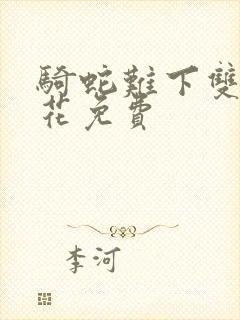 騎蛇難下雙
花免費
李河